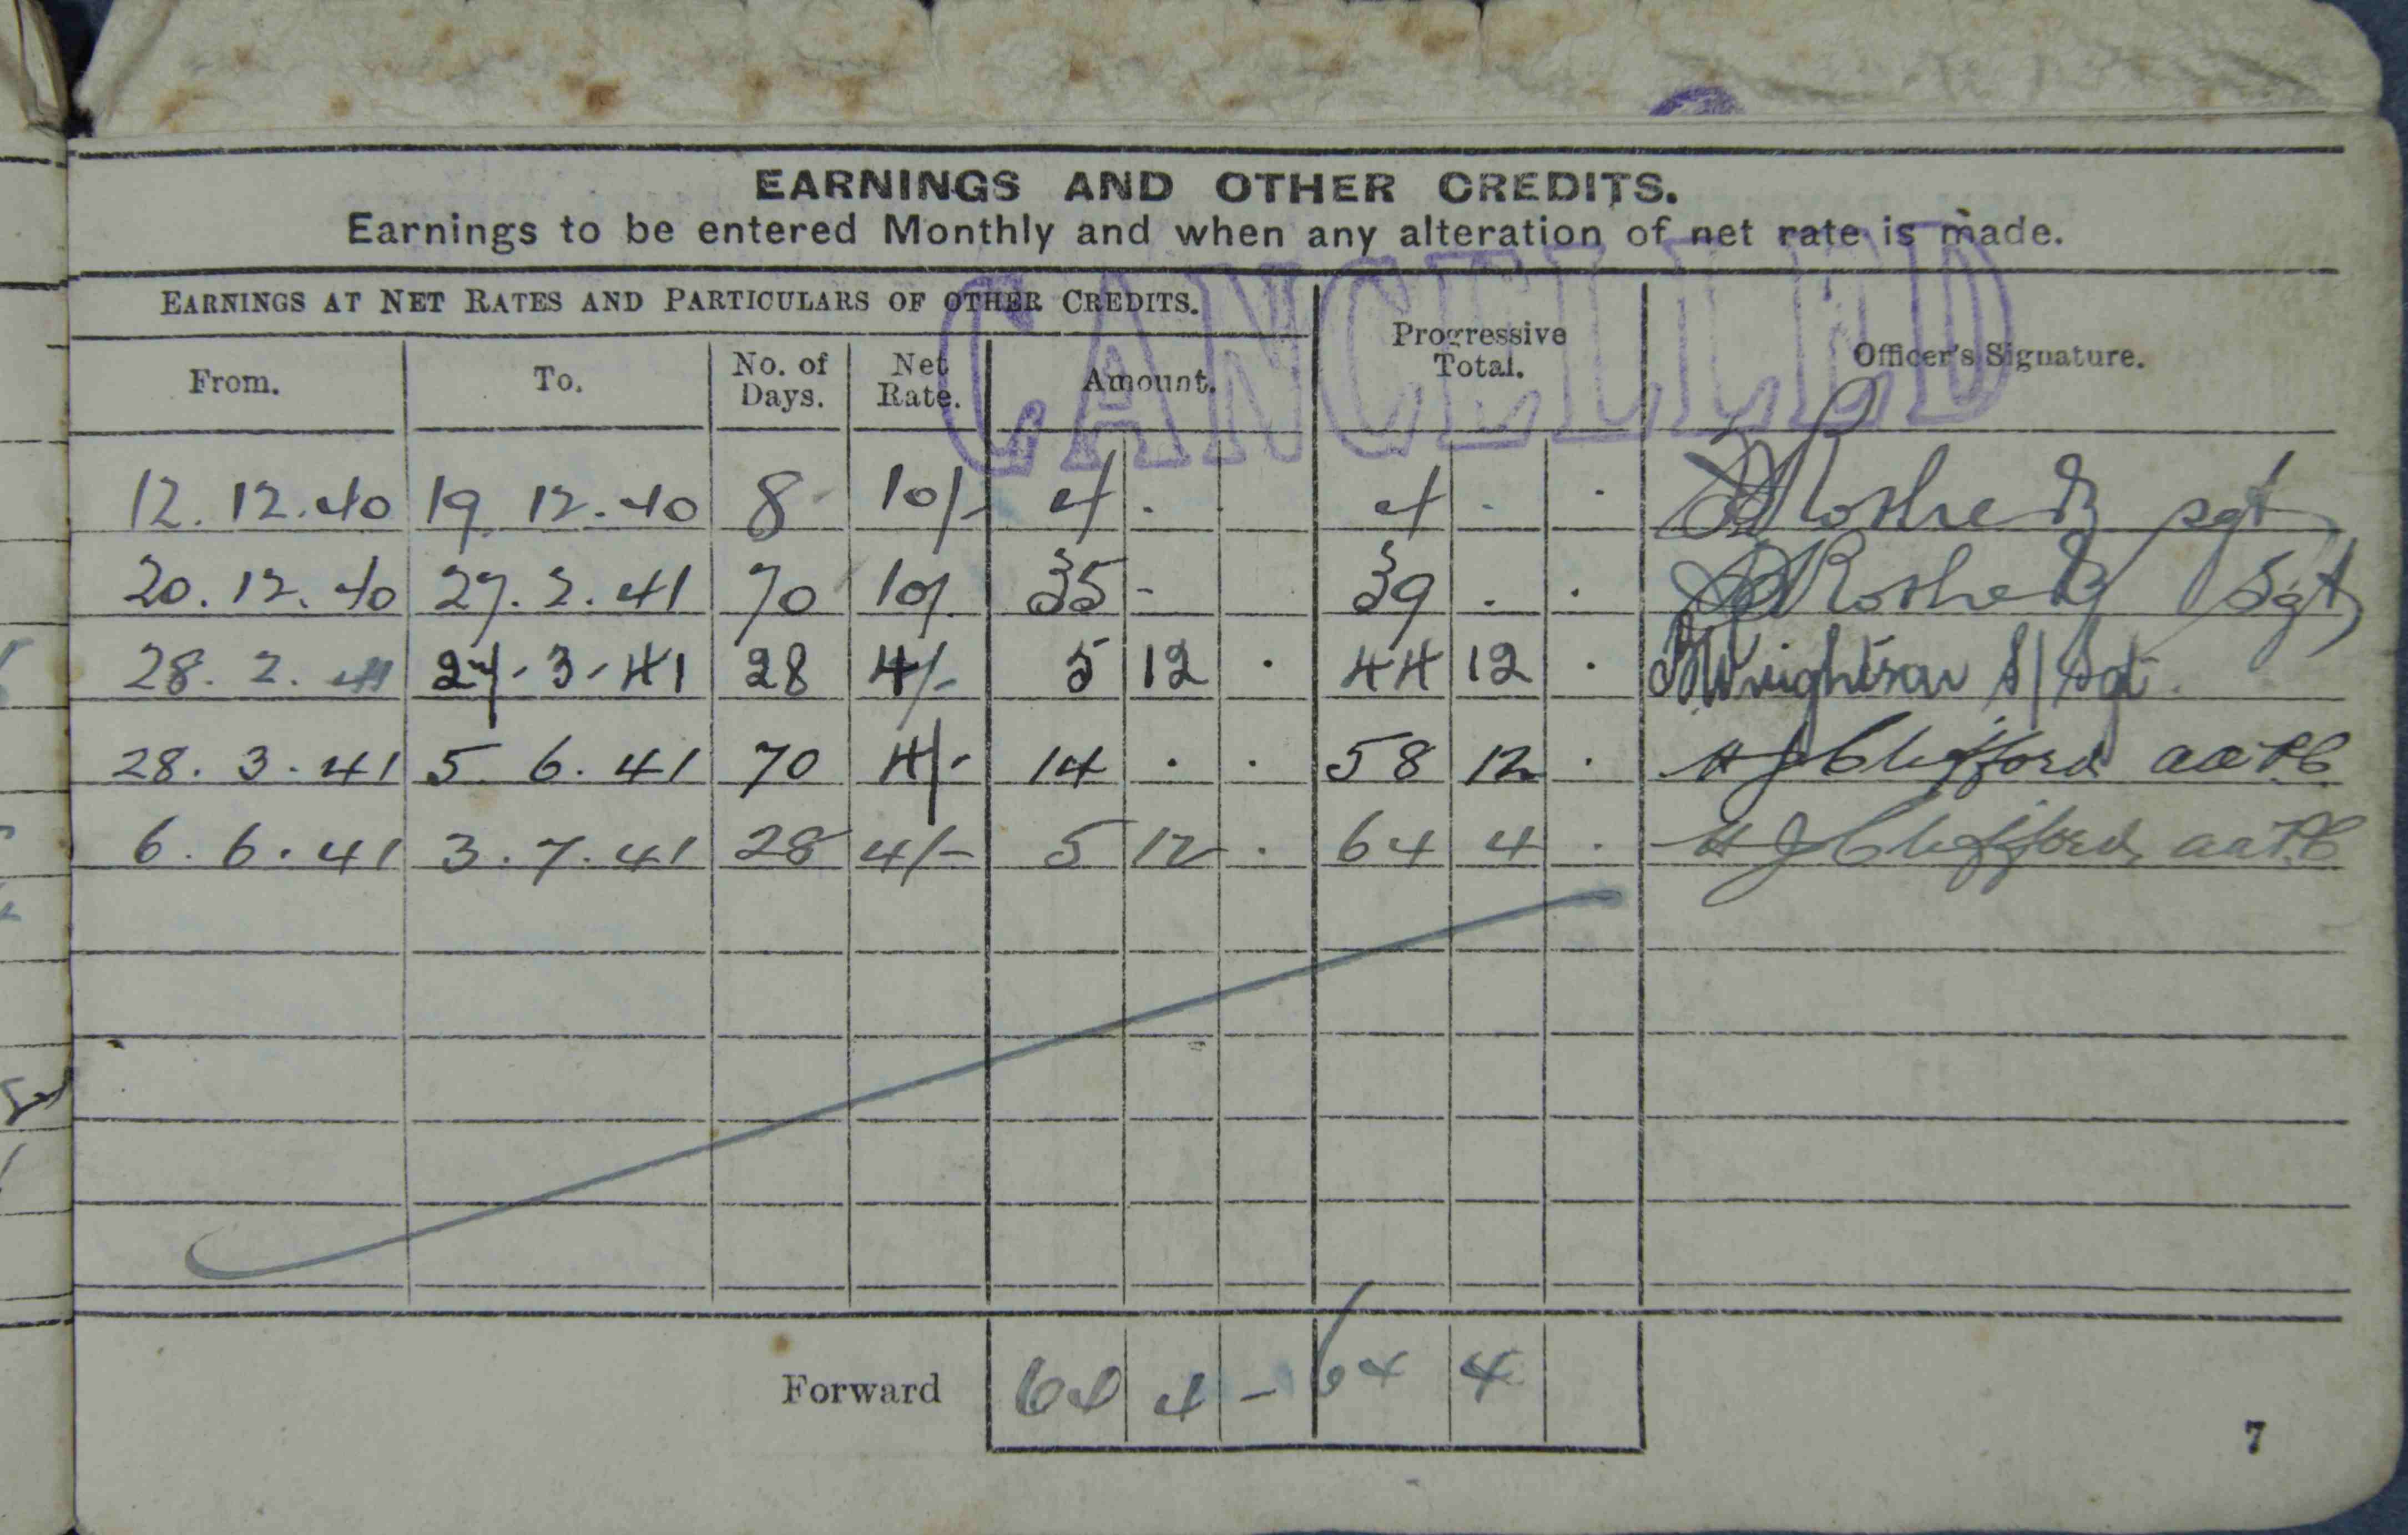 EARNINGS AND OTHER CREDITS.
Earnings to be entered Monthly and when any alteration of net rate is made.
CANCELLED
EARNINGS AT NET RATES AND PARTICULARS OF OTHER CREDITS.
Progressive Total.
Officer's Signature.
From. To. No. of Days. Net Rate. Amount.
12.12.40 19.12.40 8 10/- 4 . . 4 . . sgt
20.12.40 27.2.41 70 10/. 35 - 39 . . Sgt
28.2.41 27-3-41 28 4/- 5 12 . 44 12 . S/Sgt.
28.3.41 5.6.41 70 4/- 14 . . 58 12 . H J Clifford aaPC
6.6.41 3.7.41 28 4/- 5 12 . 64 4 . H J Clifford aaPC
Forward 64 4 - 64 4
7